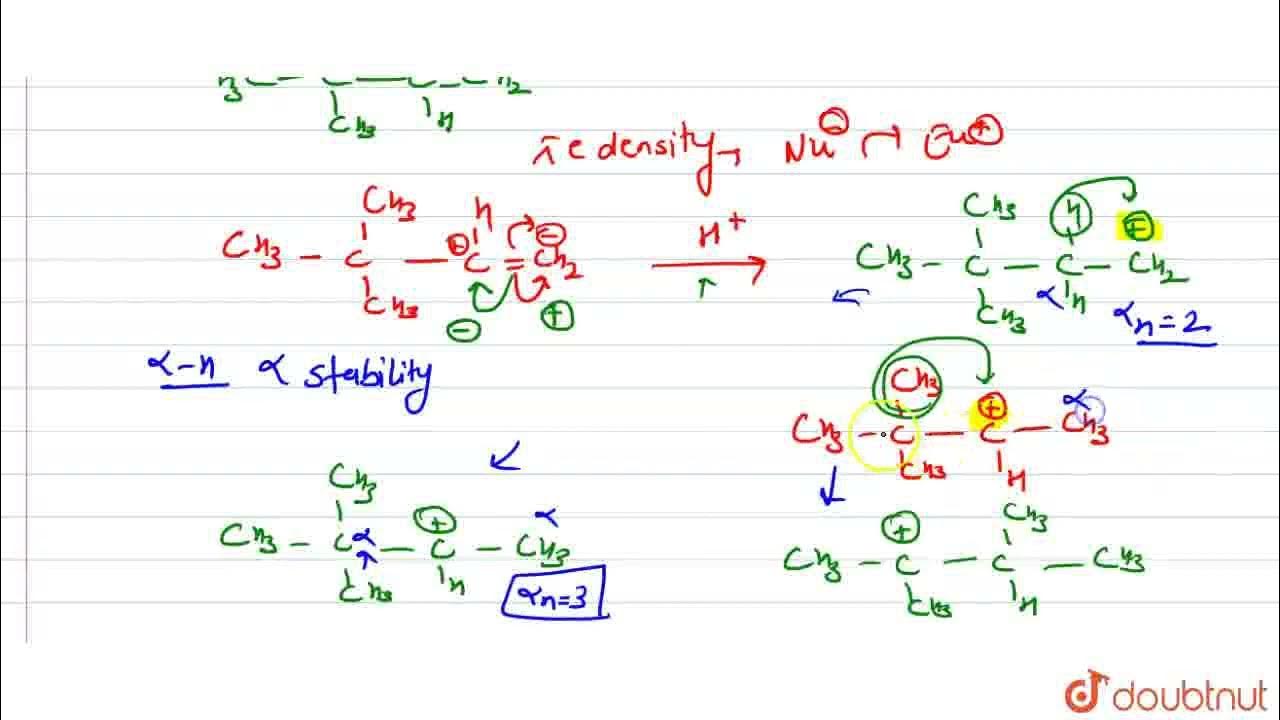 CH3
H
π e density → Nu⊖ Eu⊕
CH3 H
CH3 - C - C = CH2
⊕ ⊖
CH3
⊖ ⊕
H+
CH3 H ⊕
CH3 - C - C - CH2
CH3 α H
αH=2
α-H α stability
CH3 ⊕ α
CH3 - C - C - CH3
CH3 H
CH3 ⊕ α
CH3 - C α - C - CH3
CH3 H
αH=3
⊕ CH3
CH3 - C - C - CH3
CH3 H
doubtnut